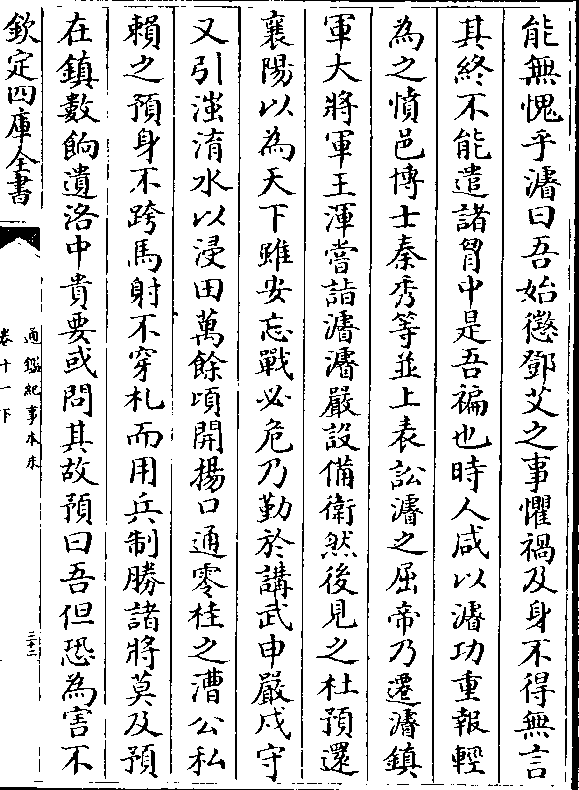 能無愧乎濬曰吾始懲鄧艾之事懼禍及身不得無言
其終不能遣諸胷中是吾褊也時人咸以濬功重報輕
為之憤邑博士秦秀等並上表訟濬之屈帝乃遷濬鎮
軍大將軍王渾嘗詣濬濬嚴設備衛然後見之杜預還
襄陽以為天下雖安忘戰必危乃勤於講武申嚴戍守
又引滍淯水以浸田萬餘頃開揚口通零桂之漕公私
賴之預身不跨馬射不穿札而用兵制勝諸將莫及預
在鎮數餉遺洛中貴要或問其故預曰吾但恐為害不
欽定四庫全書
通鑑紀事本末
卷十一下
三十二